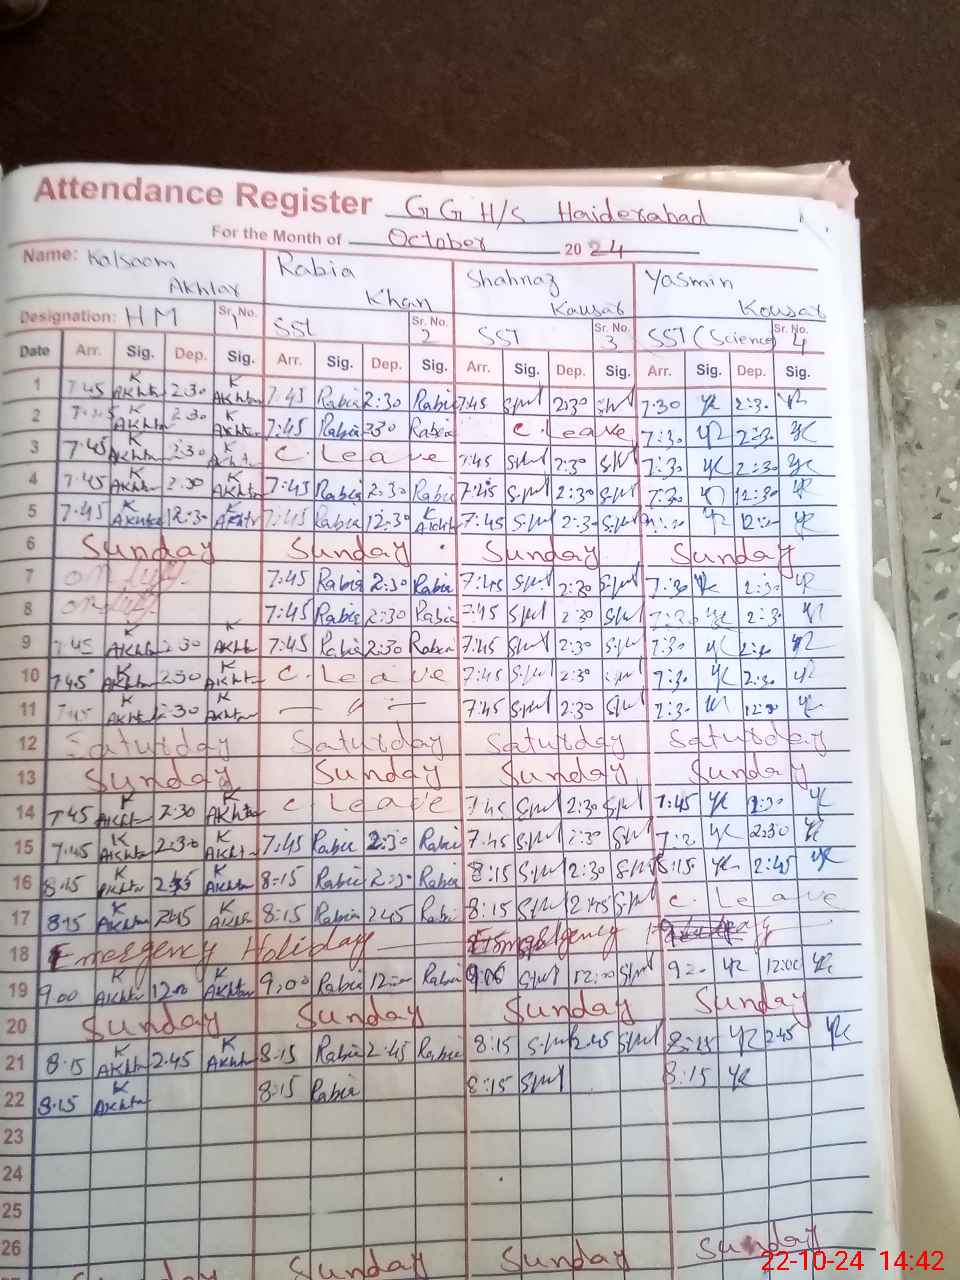 Attendance Register G G H/S Haiderabad
For the Month of October 2024
Name: Kalsoom Akhtar Rabia Khan Shahnaz Kausar Yasmin Kousar
Designation: HM Sr. No. 1 SST Sr. No. 2 SST Sr. No. 3 SST (Science) Sr. No. 4
Date Arr. Sig. Dep. Sig. Arr. Sig. Dep. Sig. Arr. Sig. Dep. Sig. Arr. Sig. Dep. Sig.
1 7:45 K Akhtar 2:30 K Akhtar 7:45 Rabia 2:30 Rabia 7:45 2:30 7:30 YK 2:30
2 K Akhtar 2:30 K Akhtar 7:45 Rabia Rabia C. Leave 7:30 2:30 YK
3 7:45 K Akhtar 2:30 K C. Leave 7:45 2:30 7:30 YK 2:30 YK
4 7:45 K Akhtar 2:30 K Akhtar 7:45 Rabia 2:30 Rabia 7:45 2:30 7:30 12:30 YK
5 7:45 K Akhtar 12:30 K Akhtar 7:45 Rabia 12:30 K Akhtar 7:45 2:30 YK
6 Sunday Sunday Sunday Sunday
7 on duty 7:45 Rabia 2:30 Rabia 7:45 2:30 7:30 YK 2:30 YK
8 on duty 7:45 Rabia 2:30 Rabia 7:45 2:30 YK 2:30
9 7:45 K Akhtar 2:30 K Akht 7:45 Rabia 2:30 Rabia 7:45 2:30 7:30 YK YK
10 7:45 K Akhtar 2:30 K Akhtar C. Leave 7:45 2:30 7:30 YK 2:30 YK
11 7:45 K Akhtar 2:30 K Akhtar — " — 7:45 2:30 YK YK
12 Saturday Saturday Saturday Saturday
13 Sunday Sunday Sunday Sunday
14 7:45 K Akhtar 2:30 K Akhtar C. Leave 7:45 2:30 7:45 YK 2:30 YK
15 7:45 K Akhtar 2:30 K Akhtar 7:45 Rabia 2:30 Rabia 7:45 2:30 YK 2:30 YK
16 8:15 K Akhtar K Akhtar 8:15 Rabia 2:30 Rabia 8:15 2:30 8:15 YK 2:45 YK
17 8:15 K Akhtar 2:45 K Akhtar 8:15 Rabia 2:45 Rabia 8:15 2:45 C. Leave
18 Emergency Holiday — Emergency
19 9:00 K Akhtar 12:00 K Akhtar 9:00 Rabia 12:00 Rabia 9:00 12:00 YK 12:00 YK
20 Sunday Sunday Sunday Sunday
21 8:15 K Akhtar 2:45 K Akhtar 8:15 Rabia 2:45 Rabia 8:15 2:45 8:15 YK 2:45 YK
22 8:15 K Akhtar 8:15 Rabia 8:15 8:15 YK
23
24
25
26 Sunday
Sunday Sunday Sunday
22-10-24 14:42